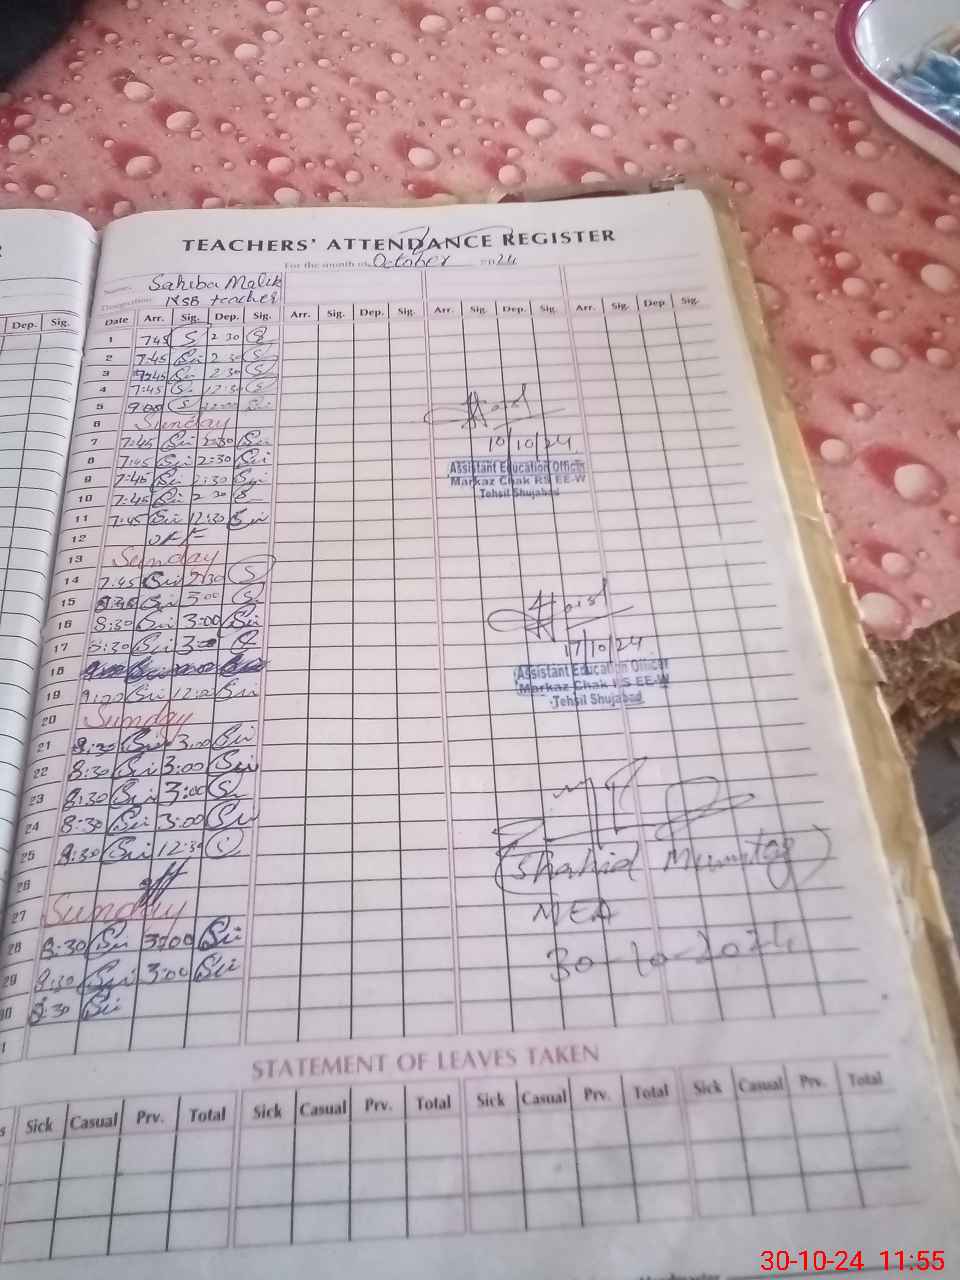 R
TEACHERS' ATTENDANCE REGISTER
For the month of October 2024
Name: Sahiba Malik
Designation: NSB teacher
Dep. Sig. Date Arr. Sig. Dep. Sig. Arr. Sig. Dep. Sig. Arr. Sig. Dep. Sig. Arr. Sig. Dep. Sig.
1 7 45 S 2 30 S
2 7:45 2 30 S
3 7:45 2:30 S
4 7:45 S 12:30 S
5 9:00 S
6 Sunday
7 7:45 2:30
10/10/24
8 7:45 2:30
Assistant Education Officer
9 7:45 2:30
Markaz Chak RS EE-W
10 7:45 2 30 S
Tehsil Shujabad
11 7:45 12:30
12 off
13 Sunday
14 7:45 2:30 S
15 8:45 3:00 S
16 8:30 3:00
17 8:30 3:00
17/10/24
18
Assistant Education Officer
19 9:00 12:00
Markaz Chak RS EE-W
20 Sunday
Tehsil Shujabad
21 8:30 3:00
22 8:30 3:00
23 8:30 3:00 S
24 8:30 3:00
25 8:30 12:30 S
(Shahid Mumtaz)
26 off
27 Sunday
MEA
28 8:30 3:00
30-10-2024
29 8:30 3:00
30 8:30
STATEMENT OF LEAVES TAKEN
Sick Casual Prv. Total Sick Casual Prv. Total Sick Casual Prv. Total Sick Casual Prv. Total
30-10-24 11:55